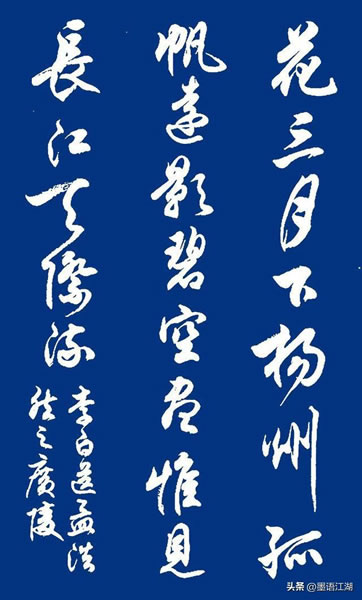 花三月下揚州孤
帆遠影碧空盡惟見
長江天際流
李白送孟浩
然之廣陵
头条 @墨语江湖